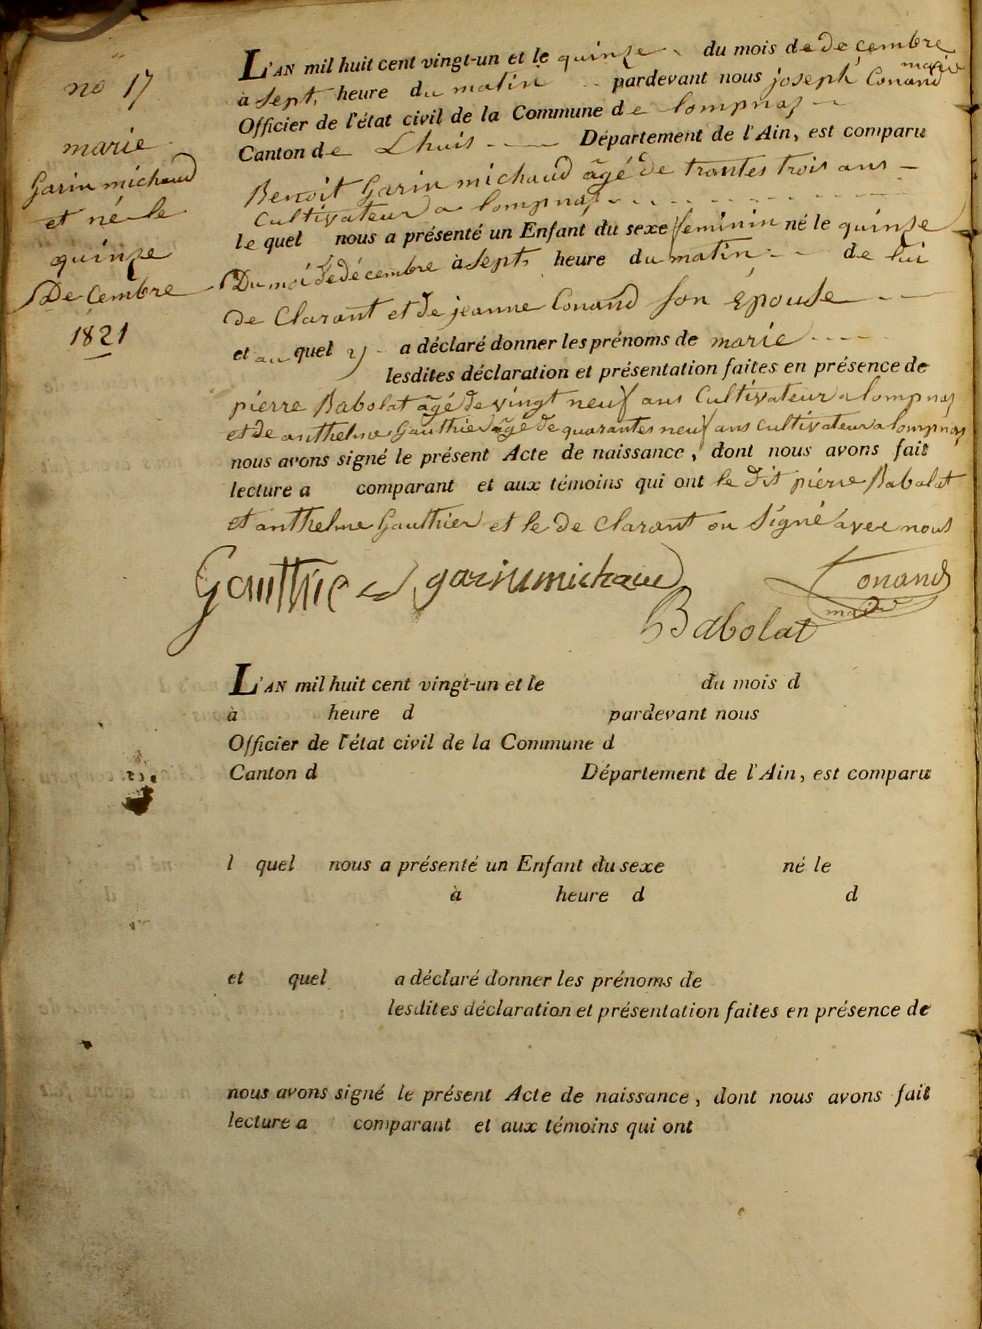 no 17
marie
Garin michaud
et né le
quinze
De Cembre
1821
L'AN mil huit cent vingt-un et le quinze du mois de de cembre
à sept heure du matin pardevant nous joseph Conand maire
Officier de l'état civil de la Commune de lompnas
Canton de Lhuis Département de l'Ain, est comparu
Benoit Garin michaud âgé de trantes trois ans
Cultivateur a lompnas
le quel nous a présenté un Enfant du sexe feminin né le quinze
Du moi de décembre à Sept heure du matin de lui
de Clarant et de jeanne Conand son Epouse
et au quel y a déclaré donner les prénoms de marie
lesdites déclaration et présentation faites en présence de
pierre Babolat âgé de vingt neuf ans Cultivateur a lompnas
et de anthelme Gauthier âgé de quarantes neuf ans cultivateur a lompnas
nous avons signé le présent Acte de naissance, dont nous avons fait
lecture a comparant et aux témoins qui ont le dit pierre Babolat
et anthelme Gauthier et le de clarant on Signé avec nous
Gauthie garinmichaud Conand
maire
Babolat
L'AN mil huit cent vingt-un et le du mois d
à heure d pardevant nous
Officier de l'état civil de la Commune d
Canton d Département de l'Ain, est comparu
l quel nous a présenté un Enfant du sexe né le
à heure d d
et quel a déclaré donner les prénoms de
lesdites déclaration et présentation faites en présence de
nous avons signé le présent Acte de naissance, dont nous avons fait
lecture a comparant et aux témoins qui ont